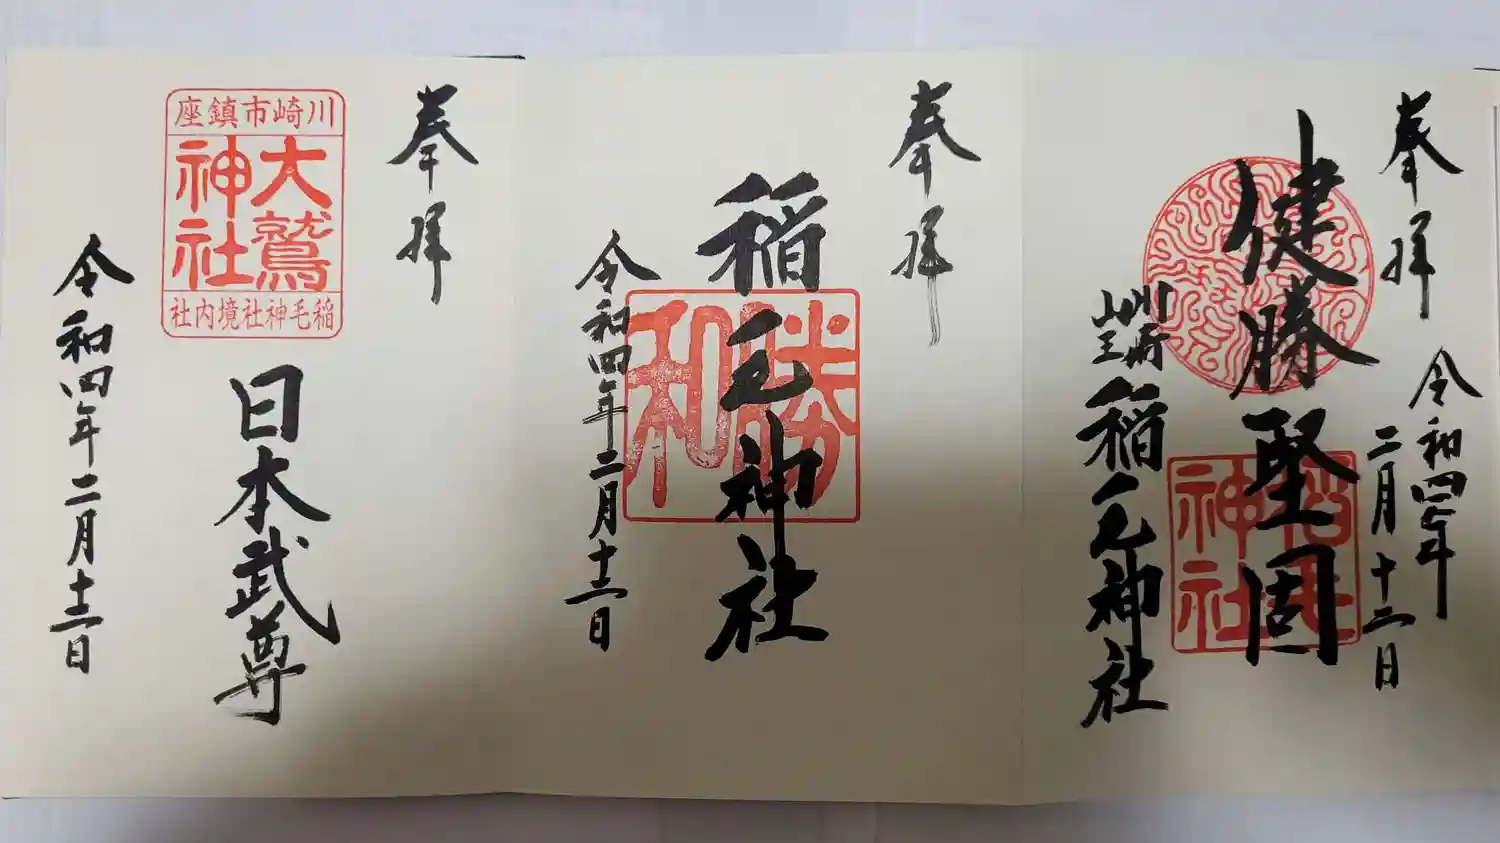 奉拝
令和四年
二月十二日
健勝堅固
川崎
山王
稲毛神社
稲毛
神社
奉拝
稲毛神社
勝
和
令和四年二月十二日
奉拝
川崎市鎮座
大鷲
神社
稲毛神社境内社
日本武尊
令和四年二月十二日